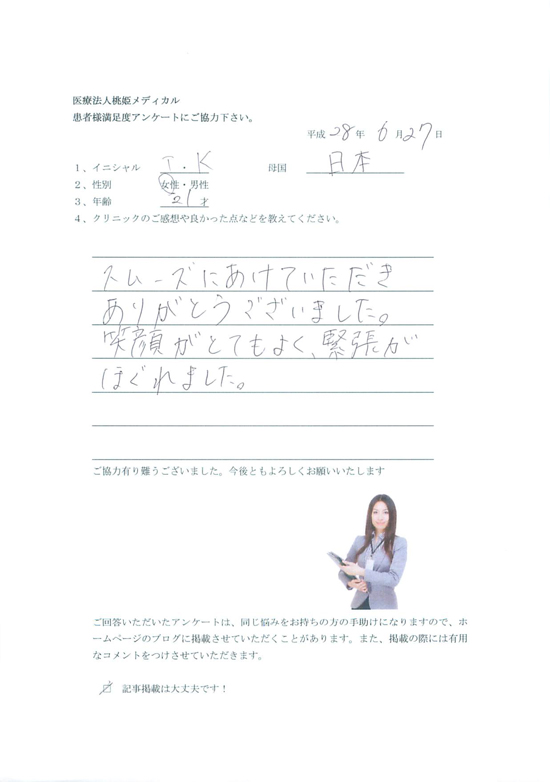 医療法人桃姫メディカル
患者様満足度アンケートにご協力下さい。
平成 28 年 6 月 27 日
1、イニシャル I.K 母国 日本
2、性別 女性・男性
3、年齢 21 才
4、クリニックのご感想や良かった点などを教えてください。
スムーズにあけていただき
ありがとうございました。
笑顔がとてもよく、緊張が
ほぐれました。
ご協力有り難うございました。今後ともよろしくお願いいたします
ご回答いただいたアンケートは、同じ悩みをお持ちの方の手助けになりますので、ホ
ームページのブログに掲載させていただくことがあります。また、掲載の際には有用
なコメントをつけさせていただきます。
☑ 記事掲載は大丈夫です！